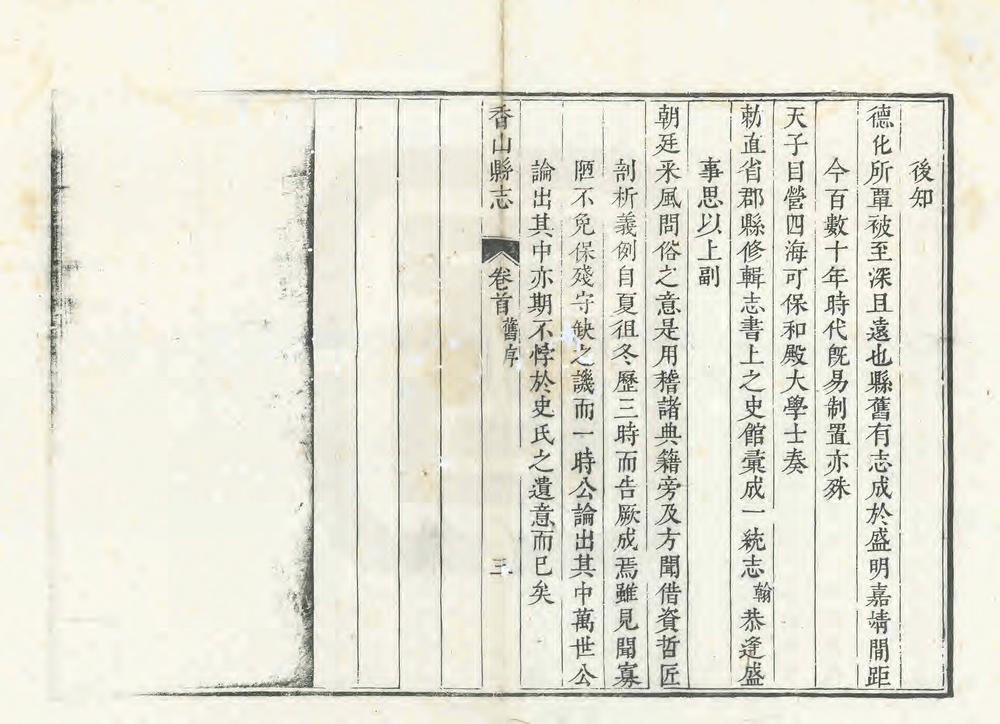 後知
德化所覃被至深且遠也縣舊有志成於盛明嘉靖間距
今百數十年時代旣易制置亦殊
天子目營四海可保和殿大學士奏
勅直省郡縣修輯志書上之史館彚成一統志翰恭逢盛
事思以上副
朝廷采風問俗之意是用稽諸典籍旁及方聞借資哲匠
剖析義例自夏徂冬歷三時而告厥成焉雖見聞寡
陋不免保殘守缺之譏而一時公論出其中萬世公
論出其中亦期不悖於史氏之遺意而已矣
香山縣志 卷首 舊序 三